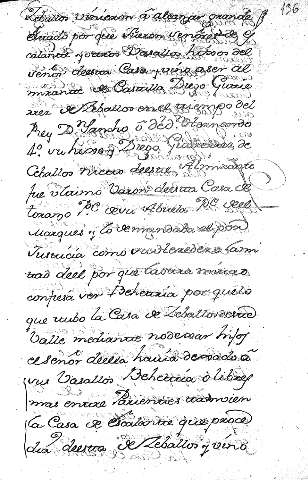 136
Zeballos vinieron a alcanzar grande
estado por que fueron Señores de Es
calante y otros Vasallos hijos del
Señor desta Casa y vino a ser Al
mirante de Castilla Diego Gutie
rrez de Zeballos en el tiempo del
Rey Dn Sancho o de Dn Fernando
4º su hijo y Diego Gutierrez de
Ceballos nieto deeste Almirante
fue ultimo Varon desta Casa de
por su Abuela
Marques y lo demandaba al por
Justicia como su heredero la mi
tad del por que la otra mitad
confiesa ser Behetria por que lo
que tubo la Casa de Zeballos este
Valle mediante no dejar hijos
el Señor della havia dejado a
sus Vasallos Behetria o libres
mas entre Parientes tambien
la Casa de Escalante que proce
dia desta de Zeballos y vino